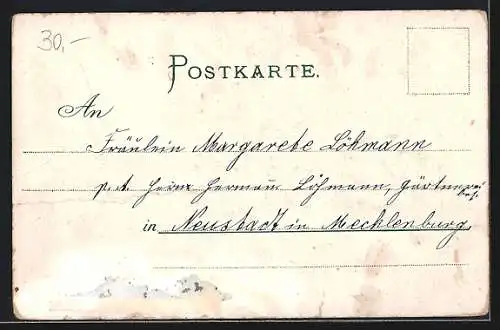 30,-
POSTKARTE.
An
Fräulein Margarete Löhmann
p. A. Herrn Hermann Löhmann, Gärtnerei
bes.
in Neustadt in Mecklenburg,